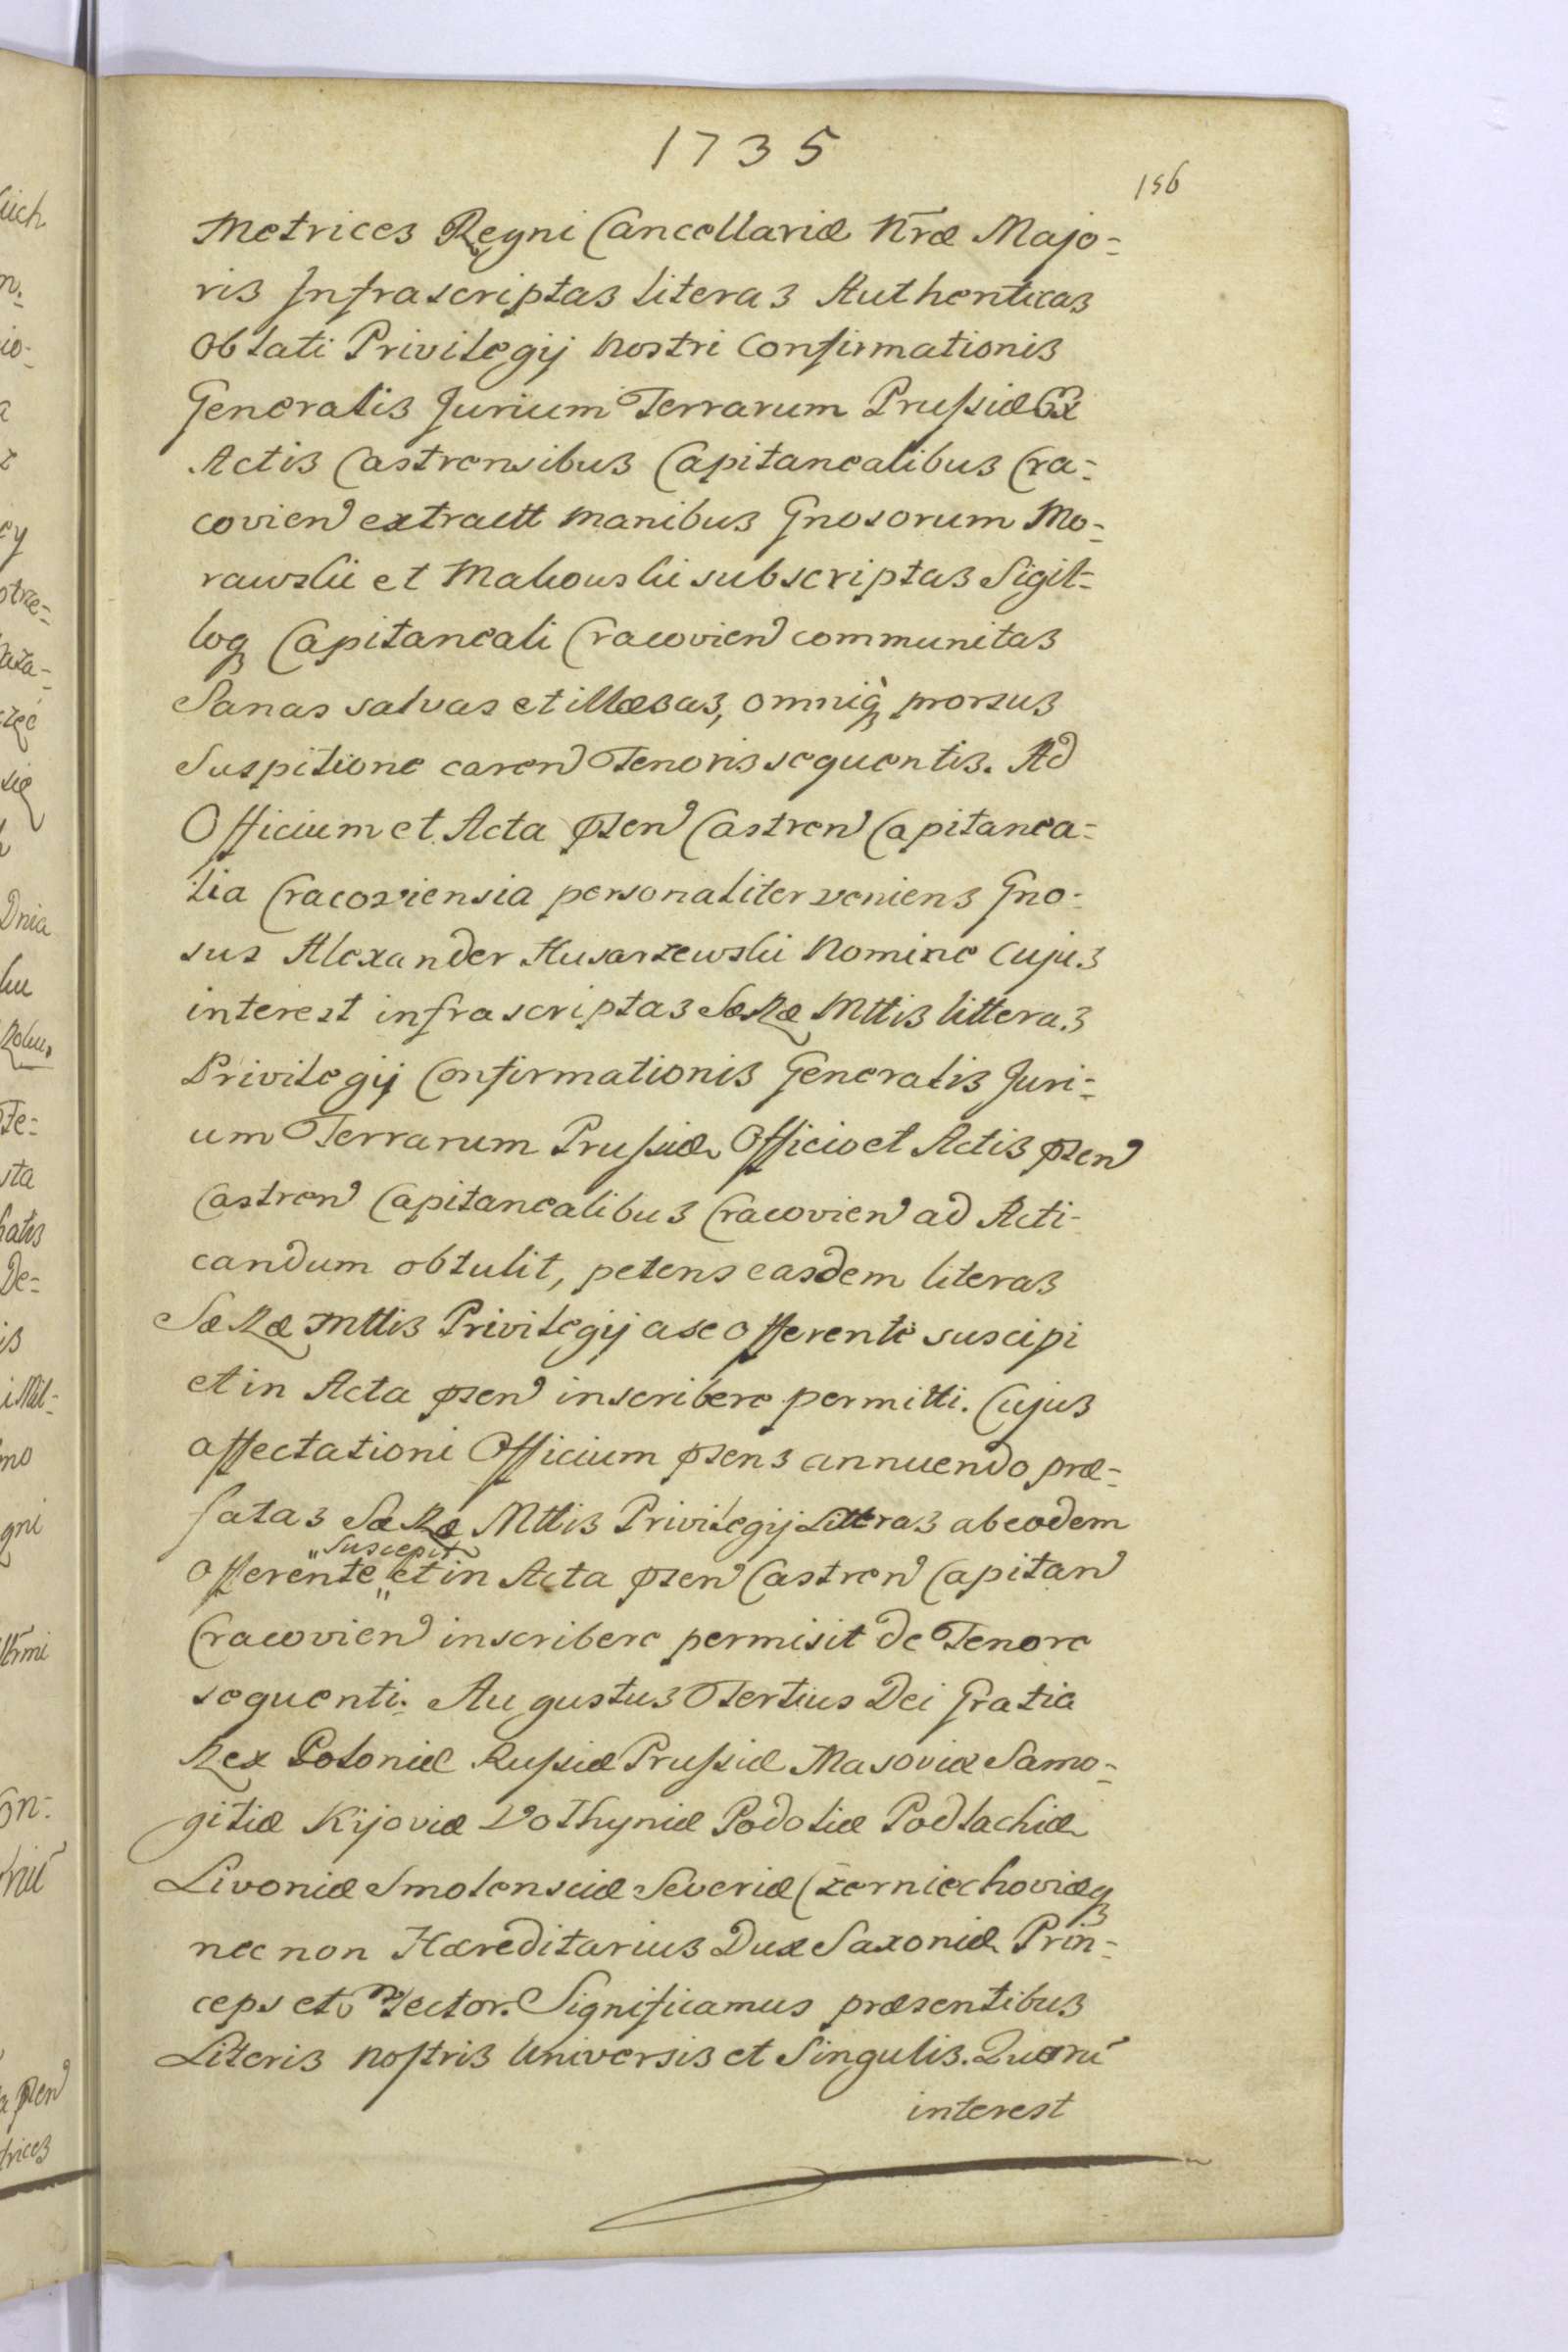 1735
156
Metrices Regni Cancellariæ Nræ Majo=
ris Infrascriptas literas Authenticas
oblati Privilegij Nostri Confirmationis
Generalis Jurium Terrarum Prussiæ Ex
Actis Castrensibus Capitanealibus Cra=
covien extractt manibus Gnosorum Mo=
rawskii et Makouskii subscriptas Sigil=
loq Capitaneali Cracovien communitas
Sanas salvas et illæsas, omniq prorsus
Suspitione caren Tenoris sequentis. Ad
Officium et Acta Præn Castren Capitanea=
lia Cracoviensia personaliter veniens Gno=
sus Alexander Husarzewski Nomine Cujus
interest infrascriptas Sæ Ræ Mttis litteras
Privilegij Confirmationis Generalis Juri=
um Terrarum Prussiæ Officio et Actis præn
Castren Capitanealibus Cracovien ad Acti=
candum obtulit, petens easdem literas
Sæ Ræ Mttis Privilegij a se offerente suscipi
et in Acta præn inscribere permitti. Cujus
affectationi Officium præns annuendo præ=
fatas Sæ Ræ Mttis Privilegij Litteras ab eodem
suscepit
offerente et in Acta præn Castren Capitan
Cracovien inscribere permisit de Tenore
sequenti. Augustus Tertius Dei Gratia
Rex Poloniæ Russiæ Prussiæ Masoviæ Samo=
gitiæ Kijoviæ Volhyniæ Podoliæ Podlachiæ
Livoniæ Smolensciæ Severiæ Czerniechoviæq
nec non Hæreditarius Dux Saxoniæ Prin=
ceps et Elector. Significamus præsentibus
Literis nostris Universis et Singulis. Quorū
interest